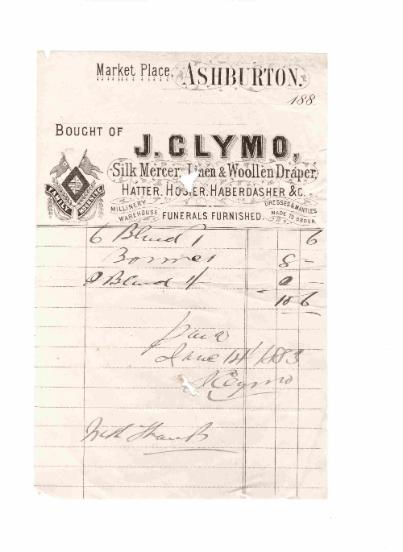 Market Place, ASHBURTON.
188
BOUGHT OF
J. CLYMO,
Silk Mercer, Linen & Woollen Draper,
HATTER, HOSIER, HABERDASHER &C.
MILLINERY WAREHOUSE
FUNERALS FURNISHED.
DRESSES & MANTLES MADE TO ORDER.
FAMILY MOURNING
6 6
8 -
10 6
Paid
June 14 1883
J Clymo
With Thanks